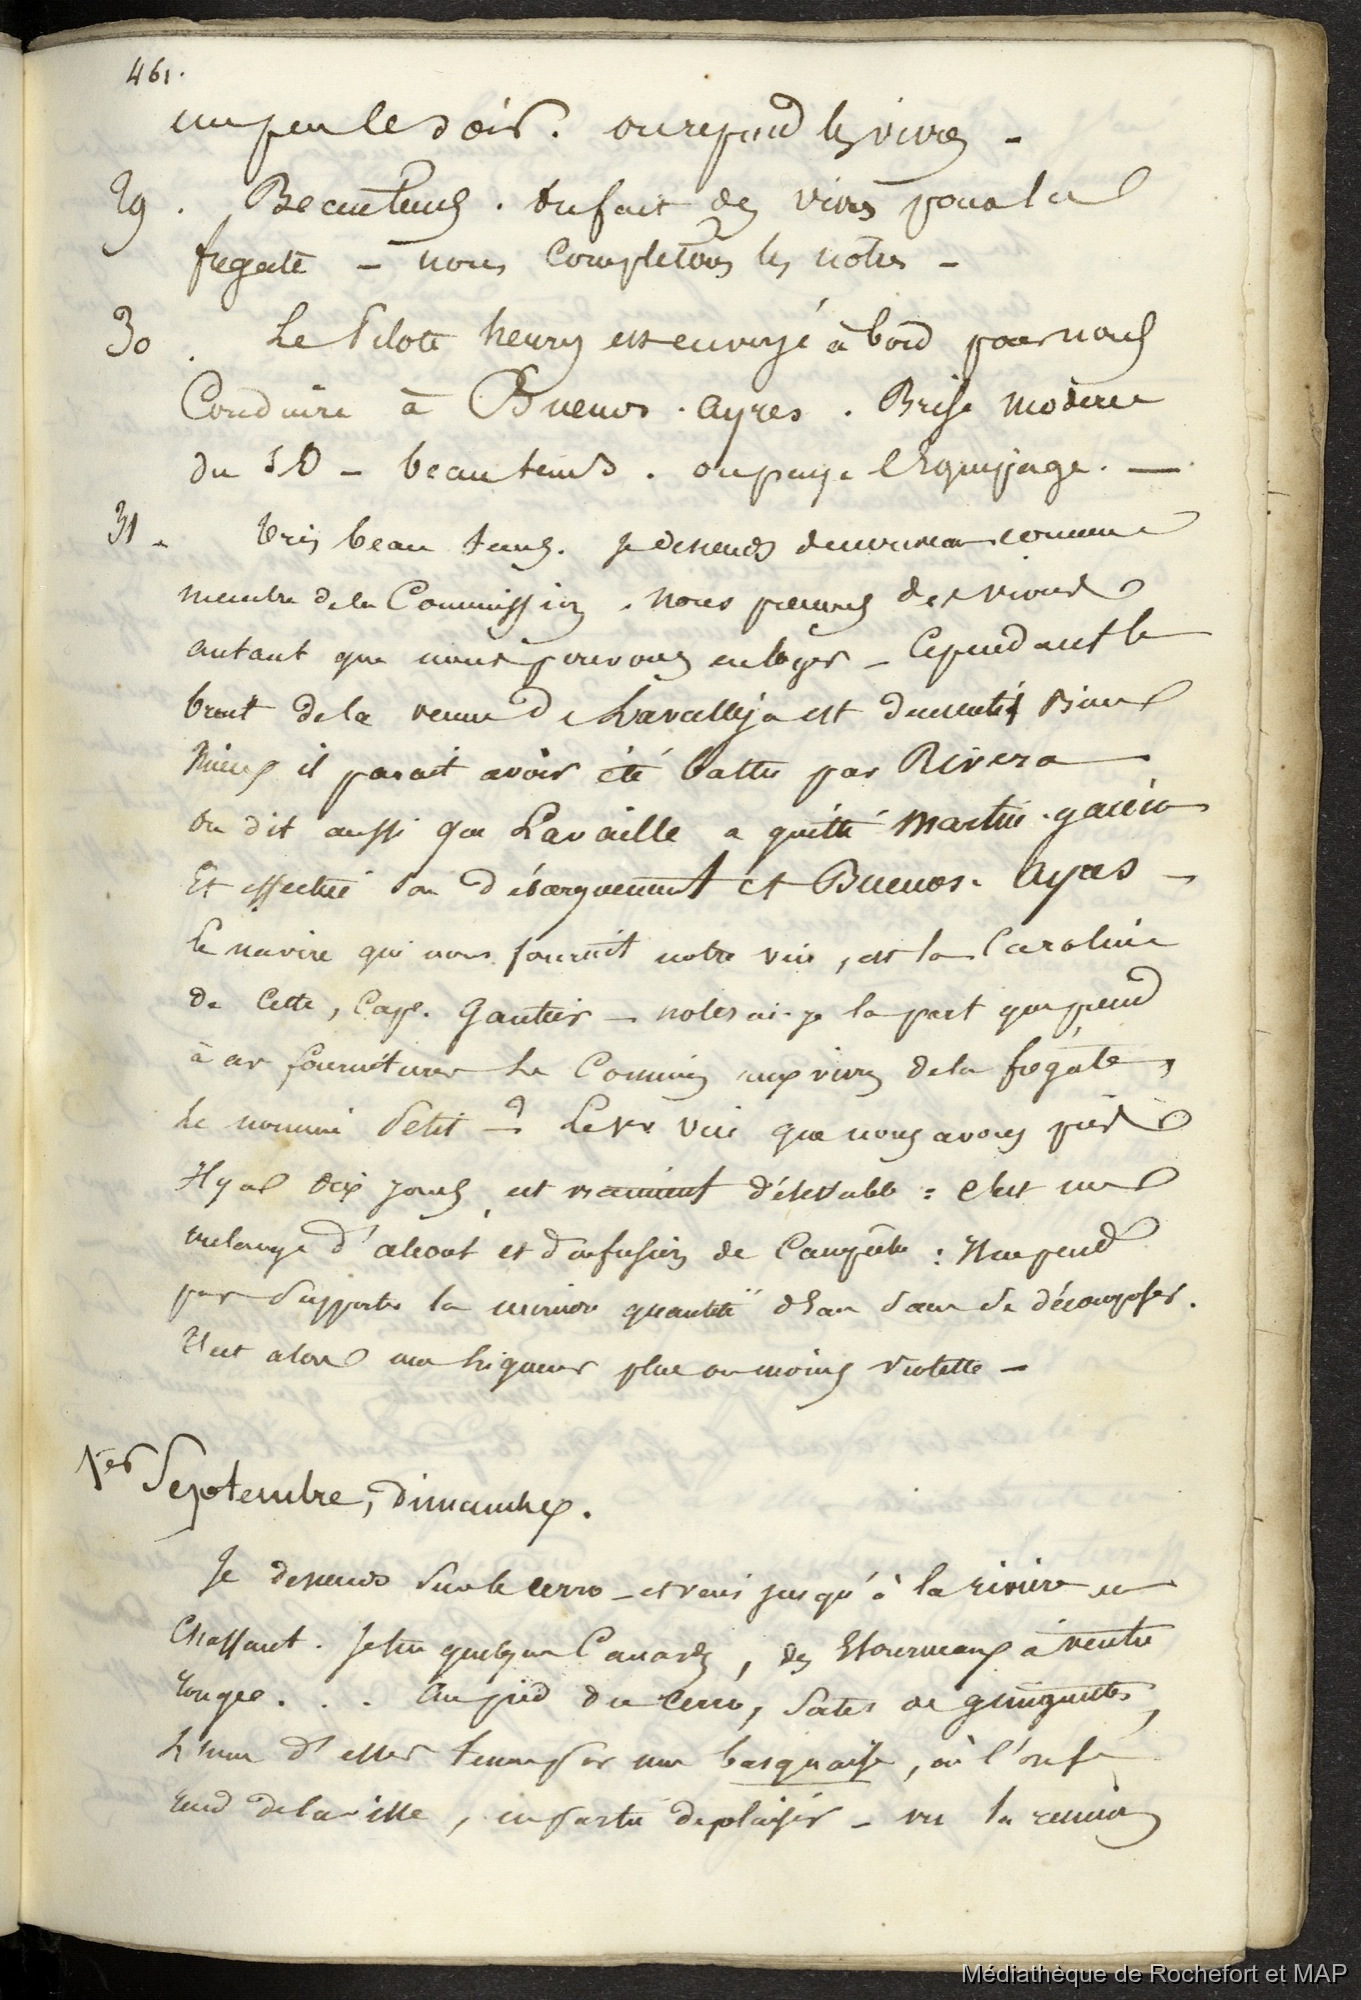 461.
un peu le soir. on reprend les vivres -
29. Beau tems. On fait des vivres pour la
fregate - nous completons les notres -
30. Le Pilote henry est envoyé à bord pour nous
Conduire à Buenos-ayres. Brise moderée
du SO - beau tems. on paye l'Equipage. -
31. Très beau tems. Je descends de nouveau comme
membre de la Commission. Nous prenons des vivres
autant que nous pouvons en loger - Cependant le
bruit de la venue de Lavalleja est dementi. Bien
Mieux il parait avoir été battu par Rivera
On dit aussi que Lavaille a quitté Martin-garcia
Et effectué son débarquement et Buenos-Ayres -
Le navire qui nous fournit notre vin, est la Caroline
de Cette, Cap. Gautier - noterai-je la part que prend
à ces fournitures Le Commis aux vivres de la fregate,
Le nommé Petit -? Le vin que nous avons pris
Il y a dix jours, est vraiment détestable : c'est un
melange d'alcool et d'infusion de Campêche : Il ne peut
pas supporter la moindre quantité d'eau sans se décomposer.
Il est alors une liqueur plus ou moins violette -
1er Septembre, dimanche.
Je descends sur le Cerro - et vais jusqu'à la riviere en
Chassant. Je tue quelques Canards, des Etourneaux à ventre
rouge... Au pied du Cerro, sortes de guinguettes,
L'une d'elles tenue par une basquaise, où l'on se
rend de la ville, en partie de plaisir - vu la reunion